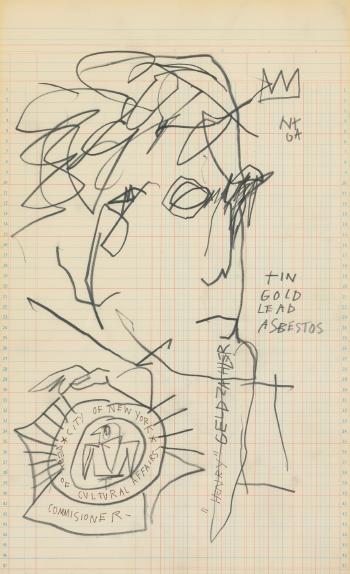 TIN
GOLD
LEAD
ASBESTOS
"HENRY" GELDZAHLER
CITY OF NEW YORK
DEPT OF CULTURAL AFFAIRS
COMMISIONER-